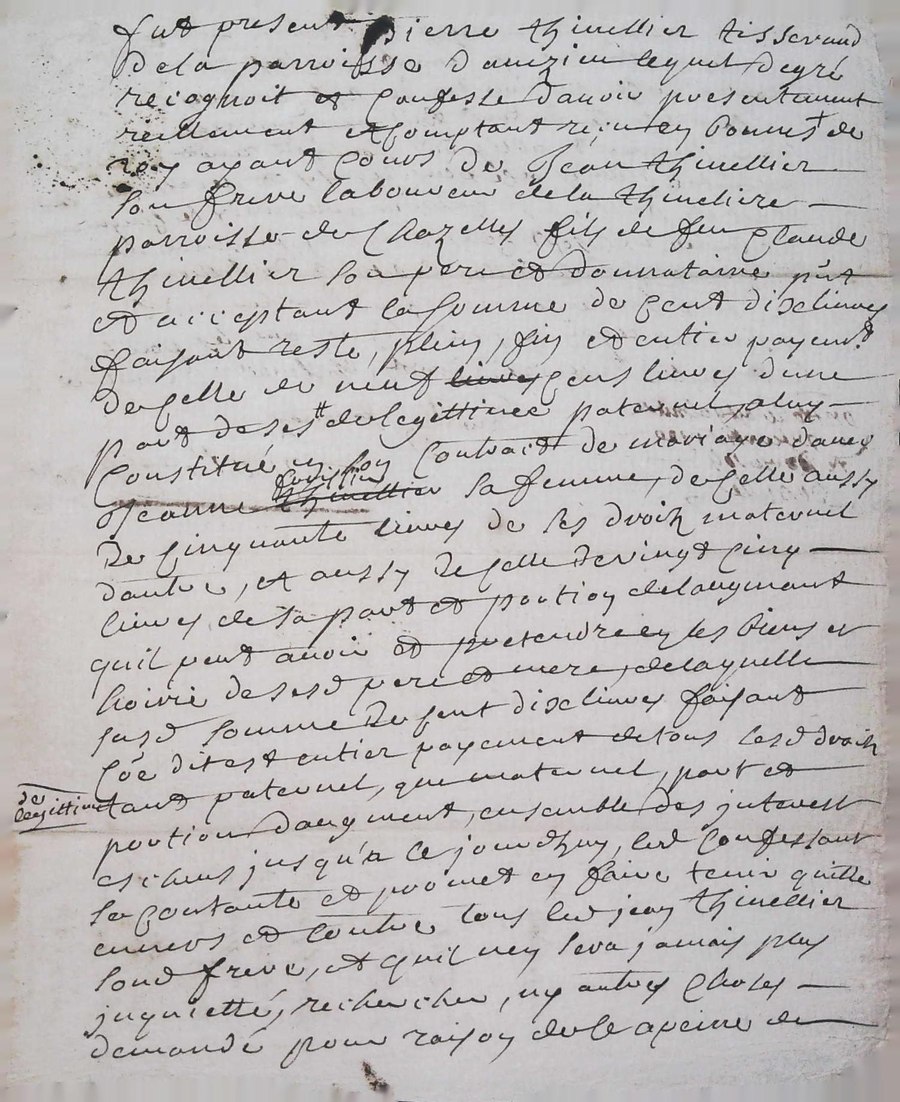 fut present pierre thinellier tisserand
dela parroisse d'aveizieu lequel de gré
recognoit et confesse d'avoir presentement
reellement et comptant reçu en bonnes de
roy ayant cours de Jean thinellier
son frere laboureur dela thineliere
parroisse de Chazelles fils de feu Claude
thinellier son pere et donnataire pñt
et acceptant la somme de cent dix livres
faisant reste, plein, fin et entier payemt
de celle de neuf livres cens livres d'une
part de ses dtt de legittimes paternel, a luy
Constitué en son Contract de mariage d'avec
Jeanne thinellier sa femme, de celle aussy
De cinquante livres de ses droits maternel
d'autre, et aussy de celle de vingt cinq
livres de sa part et portion de laugmant
quil peut avoir et pretendre en les biens et
hoirie de sesd pere et mere, de laquelle
susd somme de cent dix livres faisant
coe dit est entier payement de tous lesd droits
de legittime
tant paternel, que maternel, part et
portion d'augment, ensemble des interest
escheus jusqu'a ce jourdhuy, led confessant
se contante et promet en faire tenir quitte
envers et contre tous led jean thinellier
sond frere, et quil n'en sera jamais plus
inquietté, rechercher, ny autres choses
demandé pour raison de ce a peine de